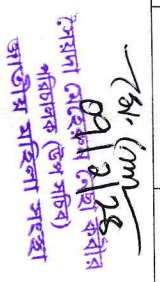 সৈয়দা মেহেরুন নেছা কবীর
পরিচালক (উপ সচিব)
জাতীয় মহিলা সংস্থা